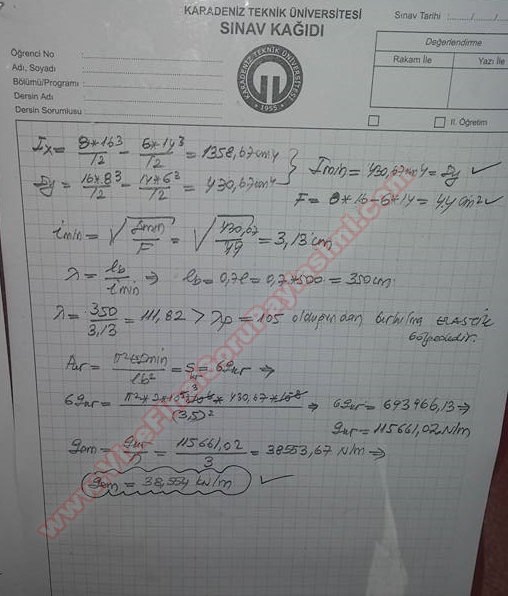 KARADENİZ TEKNİK ÜNİVERSİTESİ
SINAV KAĞIDI
Sınav Tarihi : ....../....../
Öğrenci No
Adı, Soyadı
Bölümü/Programı
Dersin Adı
Dersin Sorumlusu
KARADENİZ TEKNİK ÜNİVERSİTESİ
1955
Değerlendirme
Rakam İle
Yazı İle
II. Öğretim
Ix = 8*16³/12 - 6*14³/12 = 1358,67cm⁴
Iy = 16*8³/12 - 14*6³/12 = 430,67cm⁴
Imin = 430,67cm⁴ = Iy ✓
F = 8*16-6*14 = 44cm² ✓
imin = √(Imin/F) = √(430,67/44) = 3,13cm
λ = lb/imin ⇒ lb = 0,7l = 0,7*500 = 350cm
λ = 350/3,13 = 111,82 > λp = 105 olduğundan burkulma ELASTİK
bölgededir.
π²EImin/lb² = = 6qkr ⇒
6qkr = π²*2*10¹¹*10⁻⁸*430,67*10⁻⁸/(3,5)² ⇒ 6qkr = 693966,13 ⇒
qkr = 115661,02 N/m
qem = qkr/n = 115661,02/3 = 38553,67 N/m ⇒
qem = 38,554 kN/m ✓
www.VizeFinalSoruPaylasimi.com